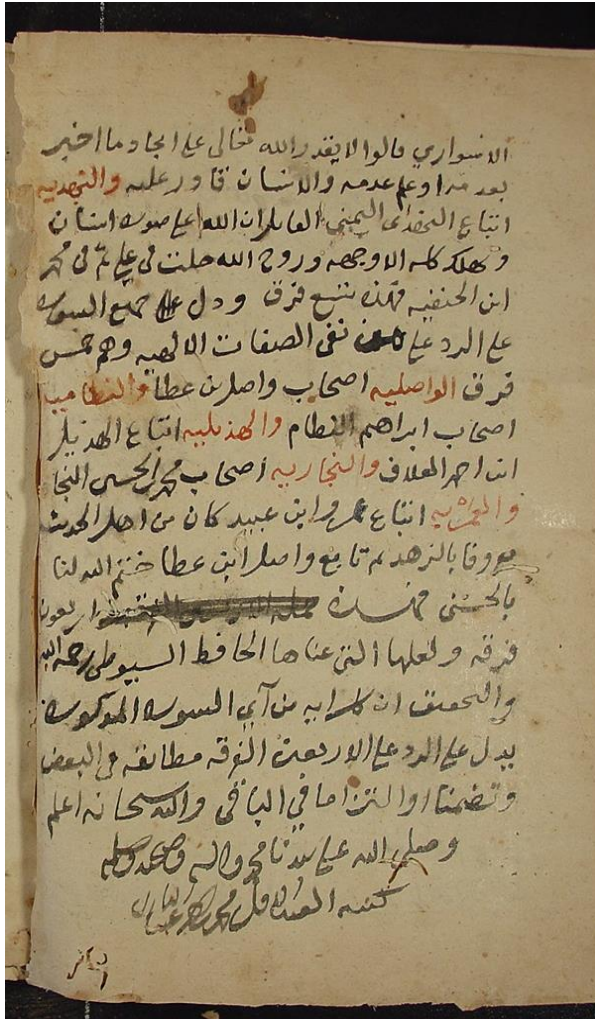 الاسواري قالوا لا يقدر الله تعالى على ايجاد ما اخبر
بعدمه او علم عدمه والانسان قادر عليه
اتباع التميمي القايل ان الله على صورة انسان
و يهلك كله الا وجهه وروح الله حلت في علي ثم في محمد
ابن الحنفيه فهذه تسع فرق ودل جميع السورة
على الرد على من نفى الصفات الالهيه وهم خمس
فرق الواصليه اصحاب واصل بن عطا والنظاميه
اصحاب ابراهيم النظام والهذيليه اتباع الهذيل
ابن احمد العلاف والنجاريه اصحاب محمد بن الحسين النجا
والعمريه اتباع عمرو ابن عبيد كان من اهل الحديث
معروفا بالزهد ثم تابع واصل ابن عطا ختم الله لنا
بالحسنى فهذه اربعون
فرقه ولعلها التي عناها الحافظ السيوطي رحمه الله
والتحقيق ان كل ايه من آي السوره المذكوره
يدل على الرد على الاربعين الفرقه مطابقه في البعض
وتضمنا او التزاما في الباقي والله سبحانه اعلم
وصلى الله على سيدنا محمد واله وصحبه وسلم
كتبه العبد الاقل محمد